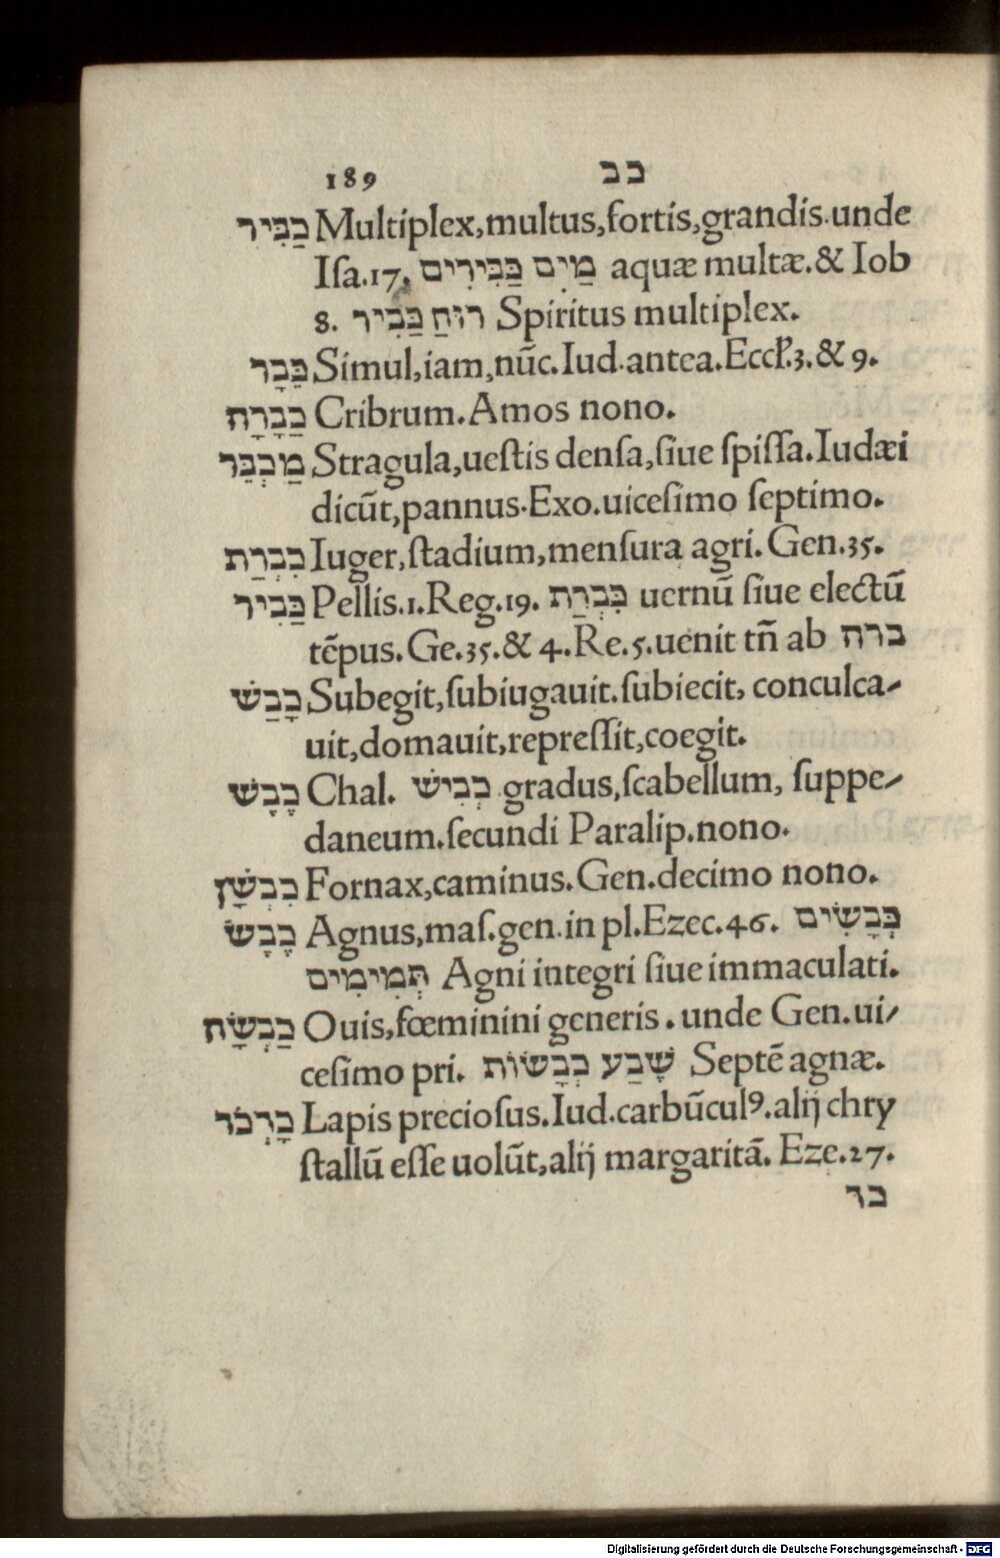 189 כב
כַּבִּיר Multiplex,multus,fortis,grandis.unde
Iſa.17. מַיִם כַּבִּירִים aquæ multæ.& Iob
8. רוּחַ כַּבִּיר Spiritus multiplex.
כְּבָר Simul,iam,nūc.Iud.antea.Eccl.3.& 9.
כְבָרָה Cribrum.Amos nono.
מַכְבָּר Stragula,ueſtis denſa,ſiue ſpiſſa.Iudæi
dicūt,pannus.Exo.uiceſimo ſeptimo.
כִּבְרַת Iuger,ſtadium,menſura agri.Gen.35.
כַּבִיר Pellis.1.Reg.19. כִּבְרַת uernū ſiue electū
tēpus.Ge.35.& 4.Re.5.uenit tñ ab ברה
כָבַשׁ Subegit,ſubiugauit.ſubiecit, conculca⸗
uit,domauit,repreſſit,coegit.
כֶבֶשׁ Chal. כְבִישׁ gradus,ſcabellum, ſuppe⸗
daneum.ſecundi Paralip.nono.
כִבְשָׁן Fornax,caminus.Gen.decimo nono.
כֶבֶשׂ Agnus,maſ.gen.in pl.Ezec.46. כְּבָשִׂים
תְּמִימִים Agni integri ſiue immaculati.
כַבְשָׂה Ouis,fœminini generis.unde Gen.ui⸗
ceſimo pri. שֶׁבַע כְבָשׂוֹת Septē agnæ.
כַדְכֹד Lapis precioſus.Iud.carbūculꝰ.alij chry
ſtallū eſſe uolūt,alij margaritā. Eze.27.
כד
Digitalisierung gefördert durch die Deutsche Forschungsgemeinschaft - DFG